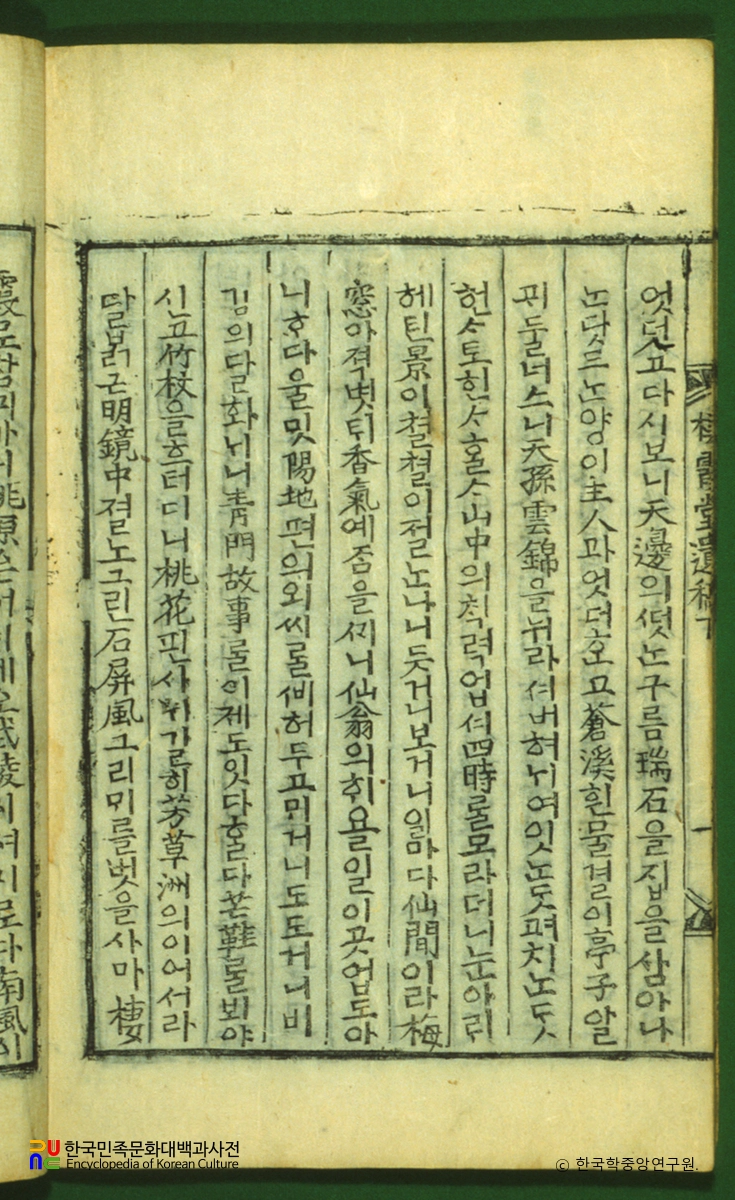 棲霞堂遺稿下 一
엇던고다시보니天邊의ᄯᅥᆺᄂᆞᆫ구름瑞石을집을삼아나
ᄂᆞᆫᄃᆞᆺ드ᄂᆞᆫ양이主人과엇더ᄒᆞᆫ고蒼溪흰물결이亭子알
ᄑᆡ둘너스니天孫雲錦을뉘라셔버혀ᄂᆡ여잇ᄂᆞᆫᄃᆞᆺ펴치ᄂᆞᆫᄃᆞᆺ
헌ᄉᆞ토헌ᄉᆞᄒᆞᆯᄉᆞ山中의ᄎᆡᆨ력업셔四時ᄅᆞᆯ모라더니눈아ᄅᆡ
헤틴景이쳘쳘이졀노나니듯거니보거니일마다仙間이라梅
窓아젹볏ᄐᆡ香氣예ᄌᆞᆷ을ᄭᆡ니仙翁의ᄒᆡ욜일이곳업도아
니ᄒᆞ다울밋陽地편의외씨ᄅᆞᆯᄲᅵ허두고ᄆᆡ거니도도거니비
김의달화ᄂᆡ니靑門故事ᄅᆞᆯ이제도잇다ᄒᆞᆯ다芒鞋ᄅᆞᆯ뵈야
신고竹杖을흐터디니桃花핀시ᄂᆡ길히芳草洲의이어셔라
달ᄇᆞᆰ근明鏡中졀노그린石屛風그리ᄆᆡ를벗을사마棲
한국민족문화대백과사전
Encyclopedia of Korean Culture
© 한국학중앙연구원.